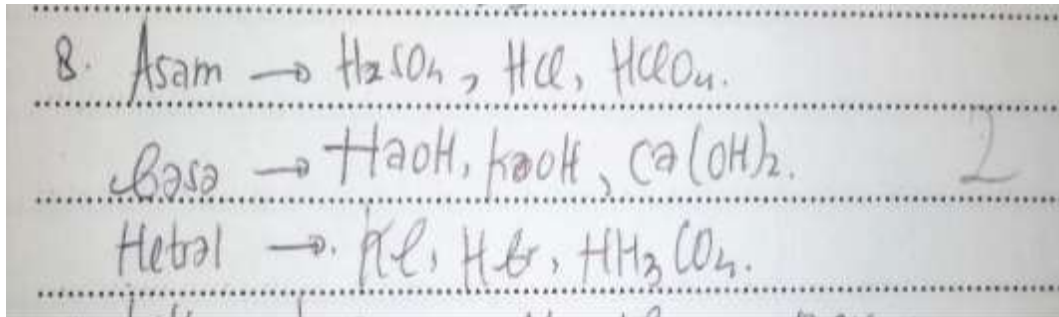 8. Asam → H2SO4, HCl, HClO4.
Basa → HaOH, kaOH, Ca(OH)2. 2
Hetral → Kl, HBr, HH3CO4.